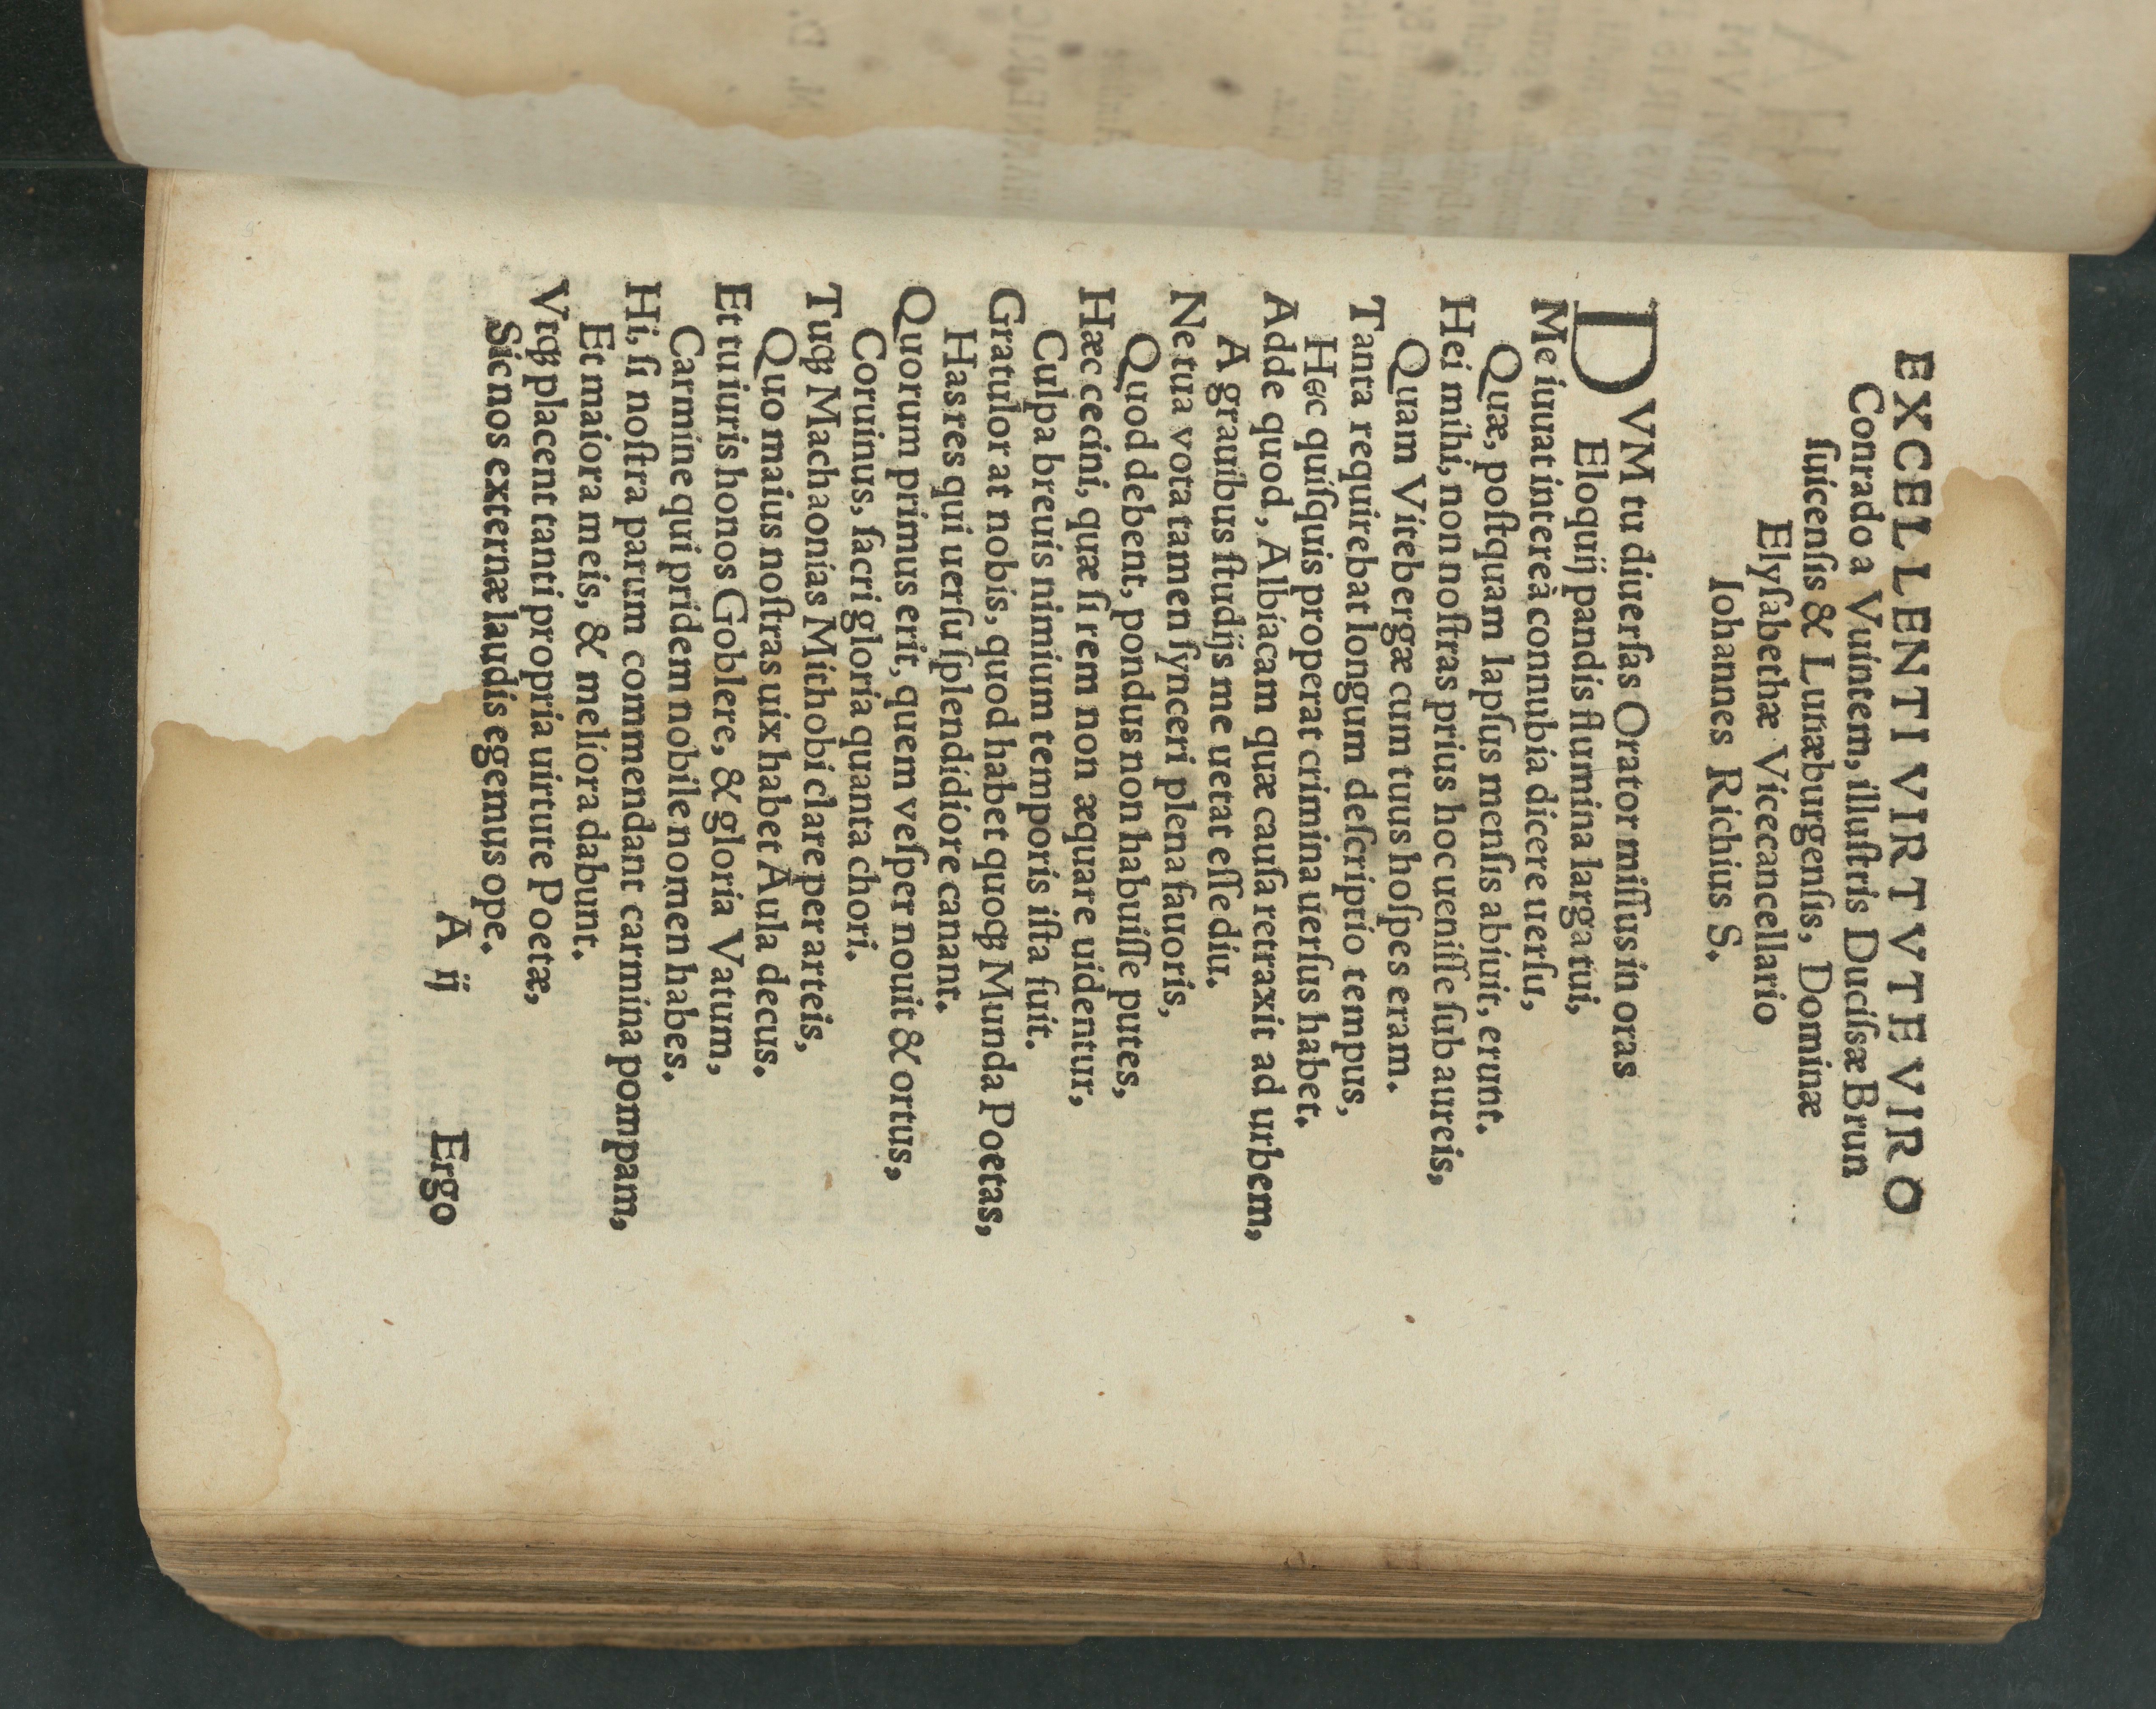 EXCELLENTI VIRTVTE VIRO
Conrado a Vuintem, illuſtris Duciſsæ Brun
ſuicenſis & Lunæburgenſis, Dominæ
Elyſabethæ Vicecancellario
Iohannes Richius S.
DVM tu diuerſas Orator miſſus in oras
Eloquij pandis flumina larga tui,
Me iuuat intereà connubia dicere uerſu,
Quæ, poſtquam lapſus menſis abiuit, erunt.
Hei mihi, non noſtras prius hoc ueniſſe ſub aureis,
Quam Vitebergæ cum tuus hoſpes eram.
Tanta requirebat longum deſcriptio tempus,
Hęc quiſquis properat crimina uerſus habet.
Adde quod, Albiacam quæ cauſa retraxit ad urbem,
A grauibus ſtudijs me uetat eſſe diu.
Ne tua vota tamen ſynceri plena fauoris,
Quod debent, pondus non habuiſſe putes,
Hæc cecini, quæ ſi rem non æquare uidentur,
Culpa breuis nimium temporis iſta fuit.
Gratulor at nobis, quod habet quoqȝ Munda Poetas,
Has res qui uerſu ſplendidiore canant.
Quorum primus erit, quem veſper nouit & ortus,
Coruinus, ſacri gloria quanta chori.
Tuqȝ Machaonias Mithobi clare per arteis,
Quo maius noſtras uix habet Aula decus.
Et tu iuris honos Goblere, & gloria Vatum,
Carmine qui pridem nobile nomen habes.
Hi, ſi noſtra parum commendant carmina pompam,
Et maiora meis, & meliora dabunt.
Vtqȝ placent tanti propria uirtute Poetæ,
Sic nos externæ laudis egemus ope.
A ij
Ergo